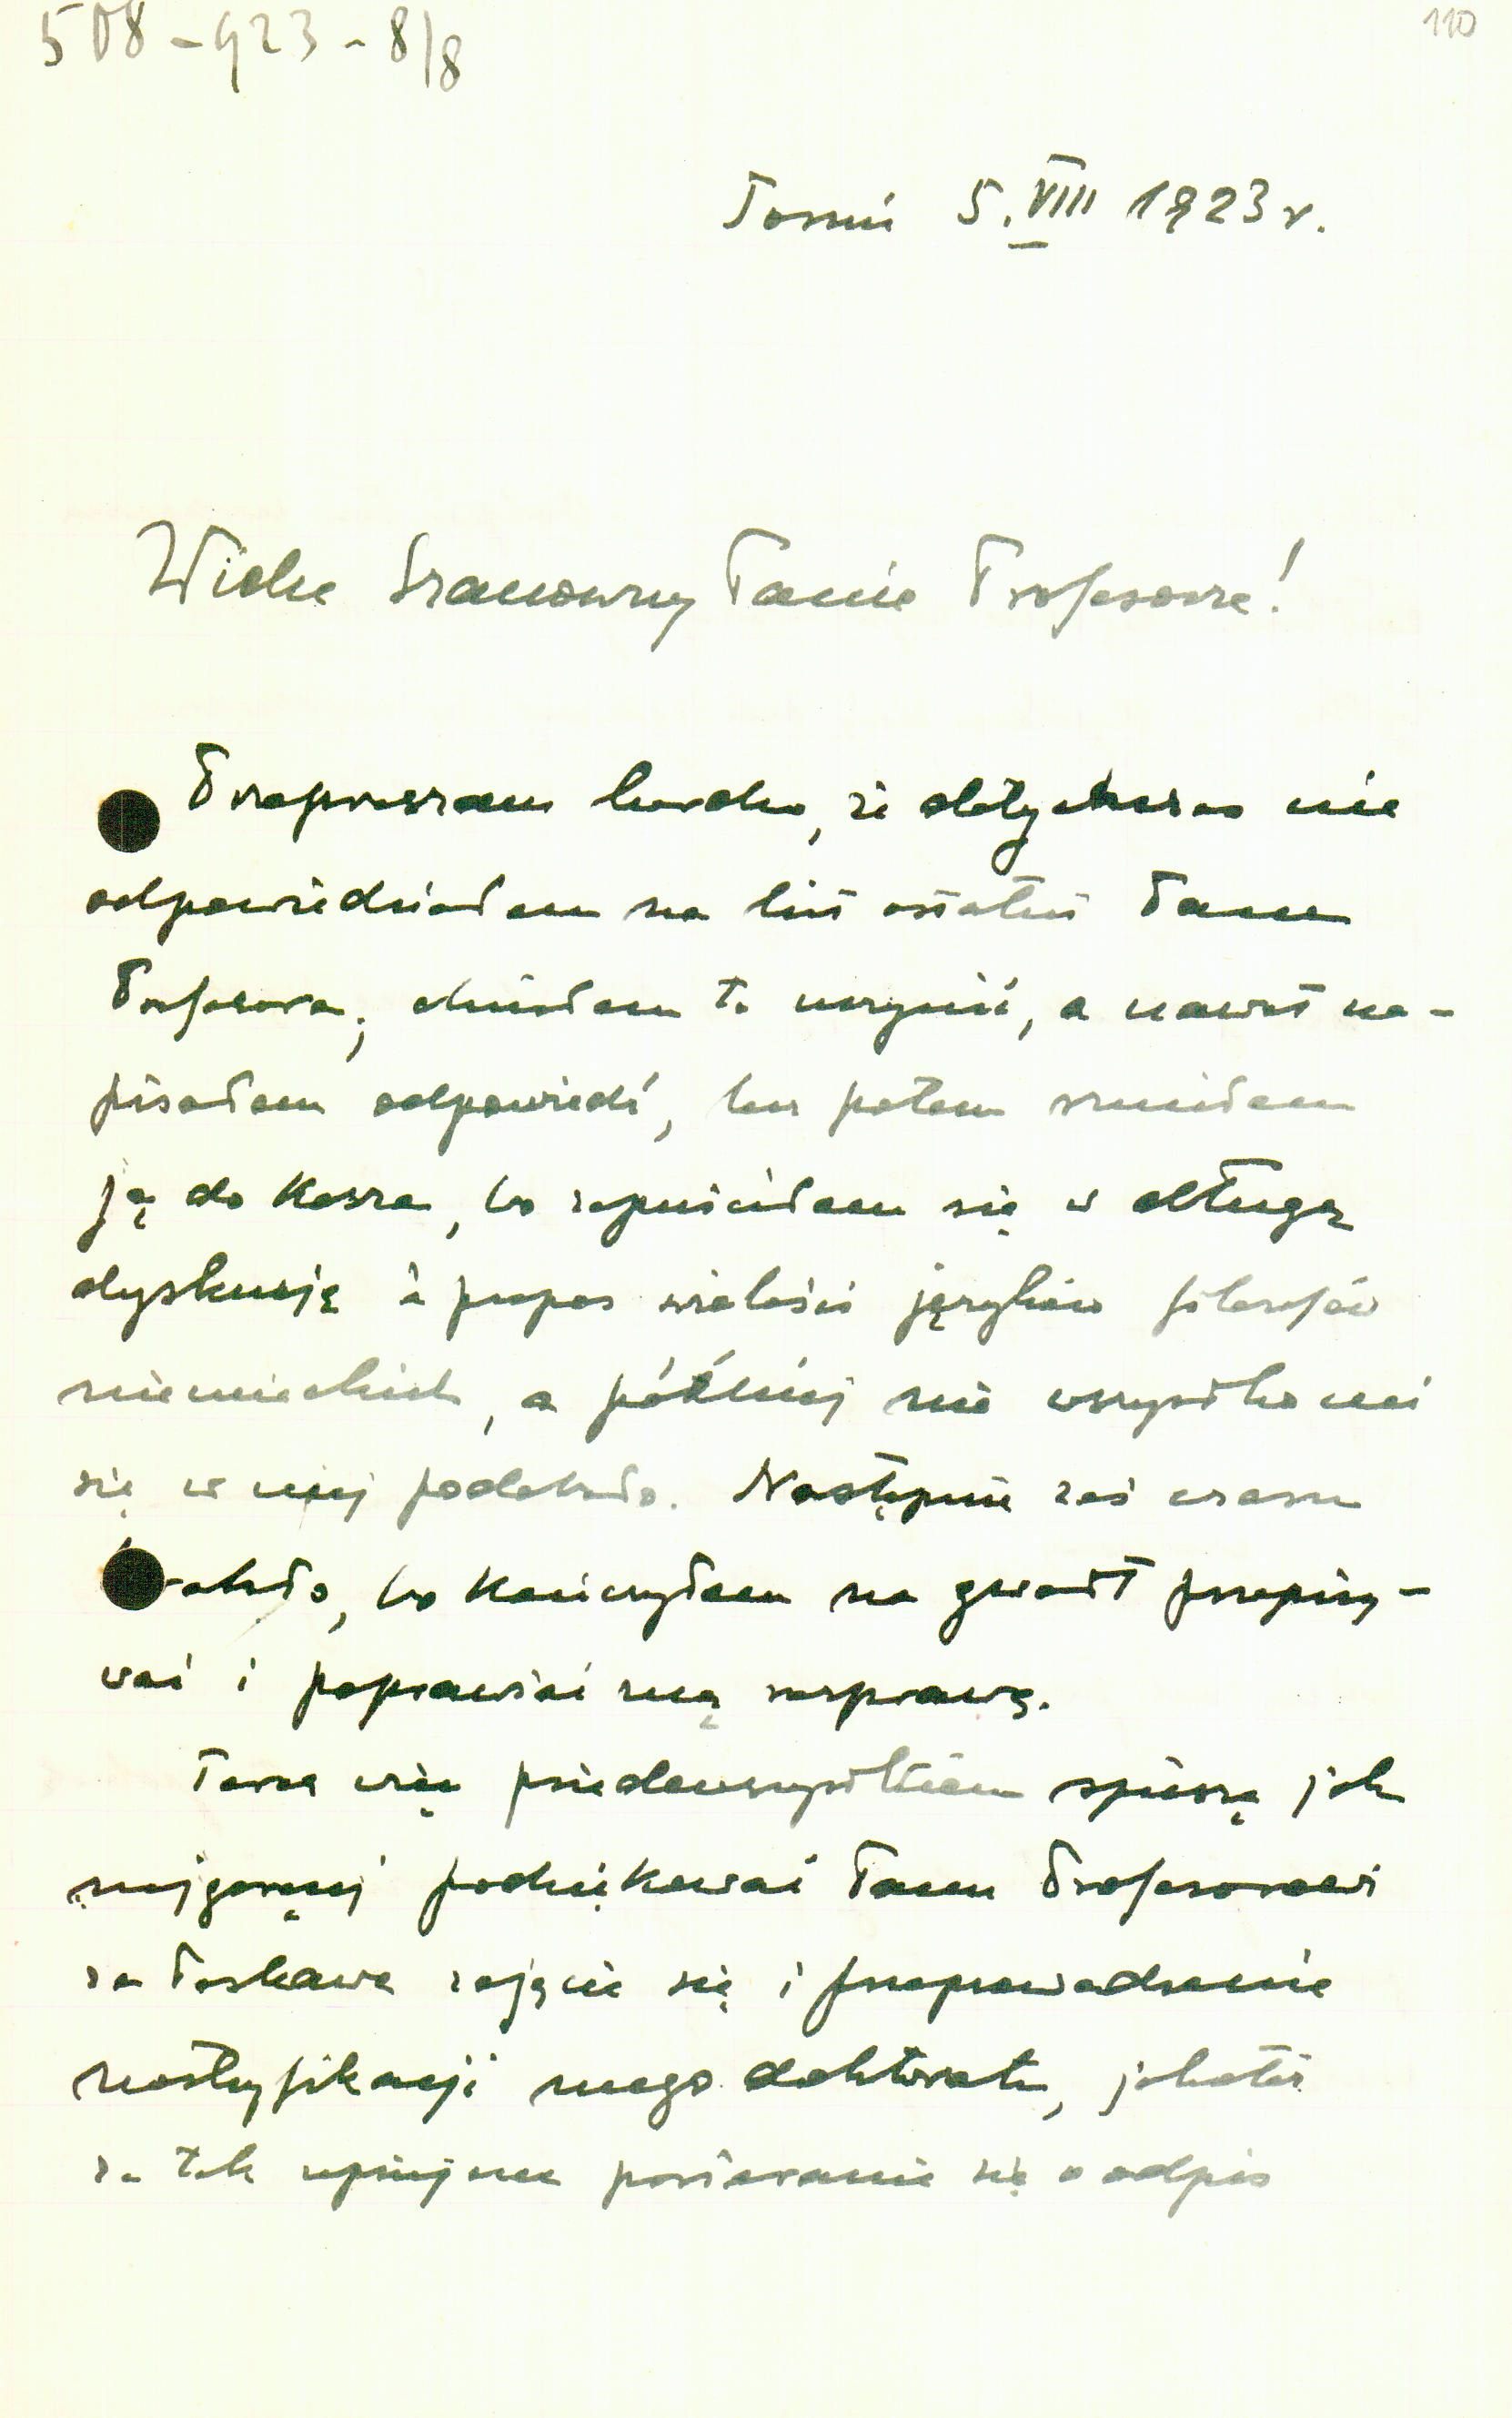 508-923-8/8
110
Toruń 5.VIII 1923 r.
Wielce Szanowny Panie Profesorze!
Przepraszam bardzo, że dotychczas nie
odpowiedziałem na list ostatni Pana
Profesora; chciałem to uczynić, a nawet na-
pisałem odpowiedź, lecz potem rzuciłem
ją do kosza, bo zapuściłem się w długą
dyskusję à propos wielości języków filozofów
niemieckich, a później nie wszystko mi
się w niej podobało. Następnie zaś czasu
brakło, bo kończyłem na gwałt przepisy-
wać i poprawiać mą rozprawę.
Teraz więc przedewszystkiem spieszę jak
najgoręcej podziękować Panu Profesorowi
za łaskawe zajęcie się i przeprowadzenie
nostryfikacji mego doktoratu, jakoteż
za tak uprzejme postaranie się o odpis